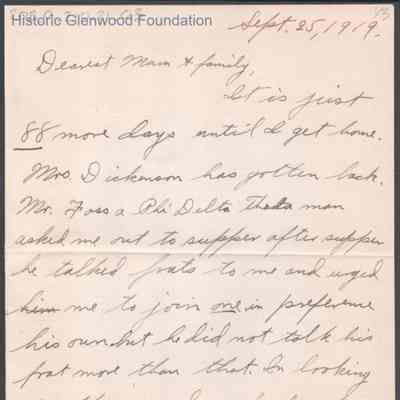 Historic Glenwood Foundation
Sept. 25, 1919.
Dearest Mam & family,
It is just
88 more days until I get home.
Mrs. Dickenson has gotten back.
Mr. Foss a Phi Delta Theta man
asked me out to supper after supper
he talked frats to me and urged
him me to join one in preference
his own but he did not talk his
frat more than that. In looking